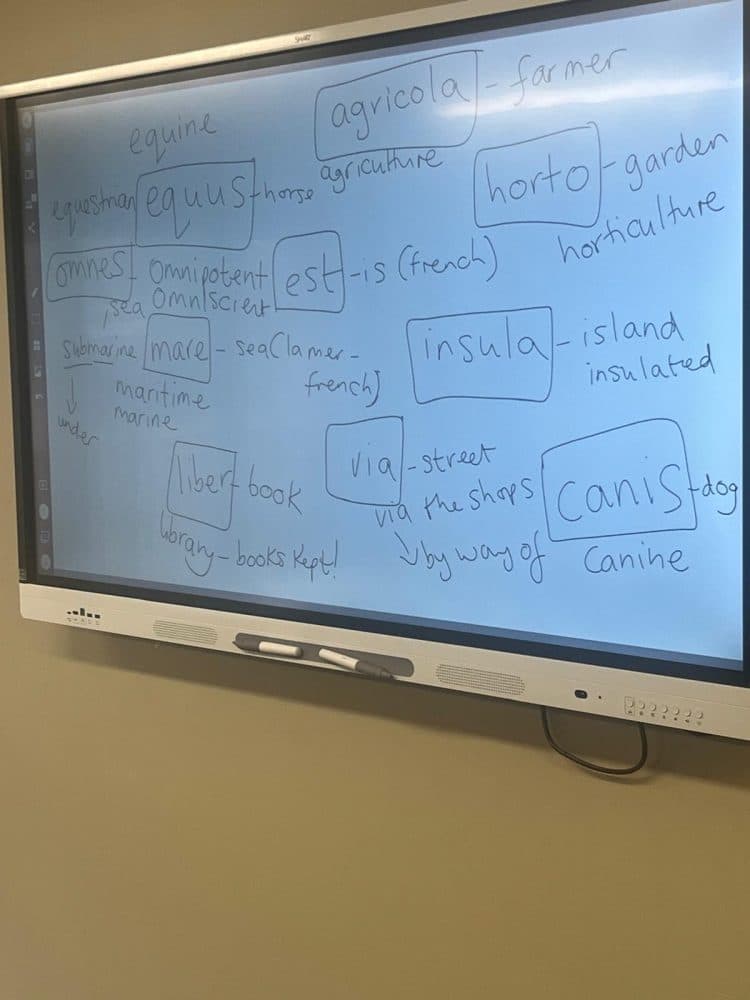 SMART
equine
agricola - farmer
agriculture
equestrian equus - horse
horto - garden
horticulture
omnes - omnipotent
omniscient
est - is (french)
sea
submarine mare - sea (la mer -
french)
under
maritime
marine
insula - island
insulated
liber - book
library - books kept!
via - street
via the shops
↓ by way of
canis - dog
canine